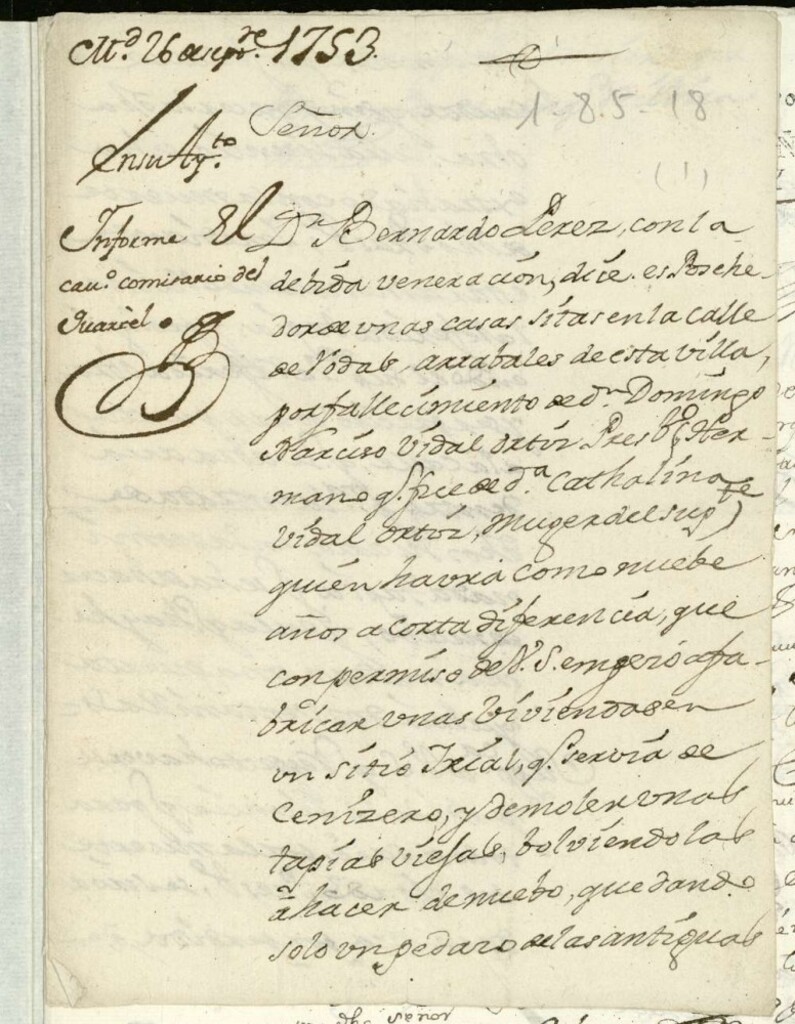 Md. 26 de sepre. 1753.
1-8.5-18
(1)
Señor.
En su Aytto.
Informe El
cavo. comisario del
Quartel.
Dn. Bernardo Perez, con la
debida veneración, dice es Poshe-
dor de vnas casas sitas en la calle
de Vodas, arrabales de esta villa,
por fallecimiento de dn. Domingo
Narciso Vidal Ortiz Presbo. Her-
mano q. fue de da. Cathalina
Vidal Ortiz, Muger del supte
quien havrá como nuebe
años a corta diferencia, que
con permiso de V.S. empezó a fa-
bricar vnas Viviendas en
vn sitio Irial, q. servia de
Cenizero, y demoler vnas
tapias viejas, bolviendolas
à hacer de nuebo, quedando
solo vn pedazo de las antiguas
Señor